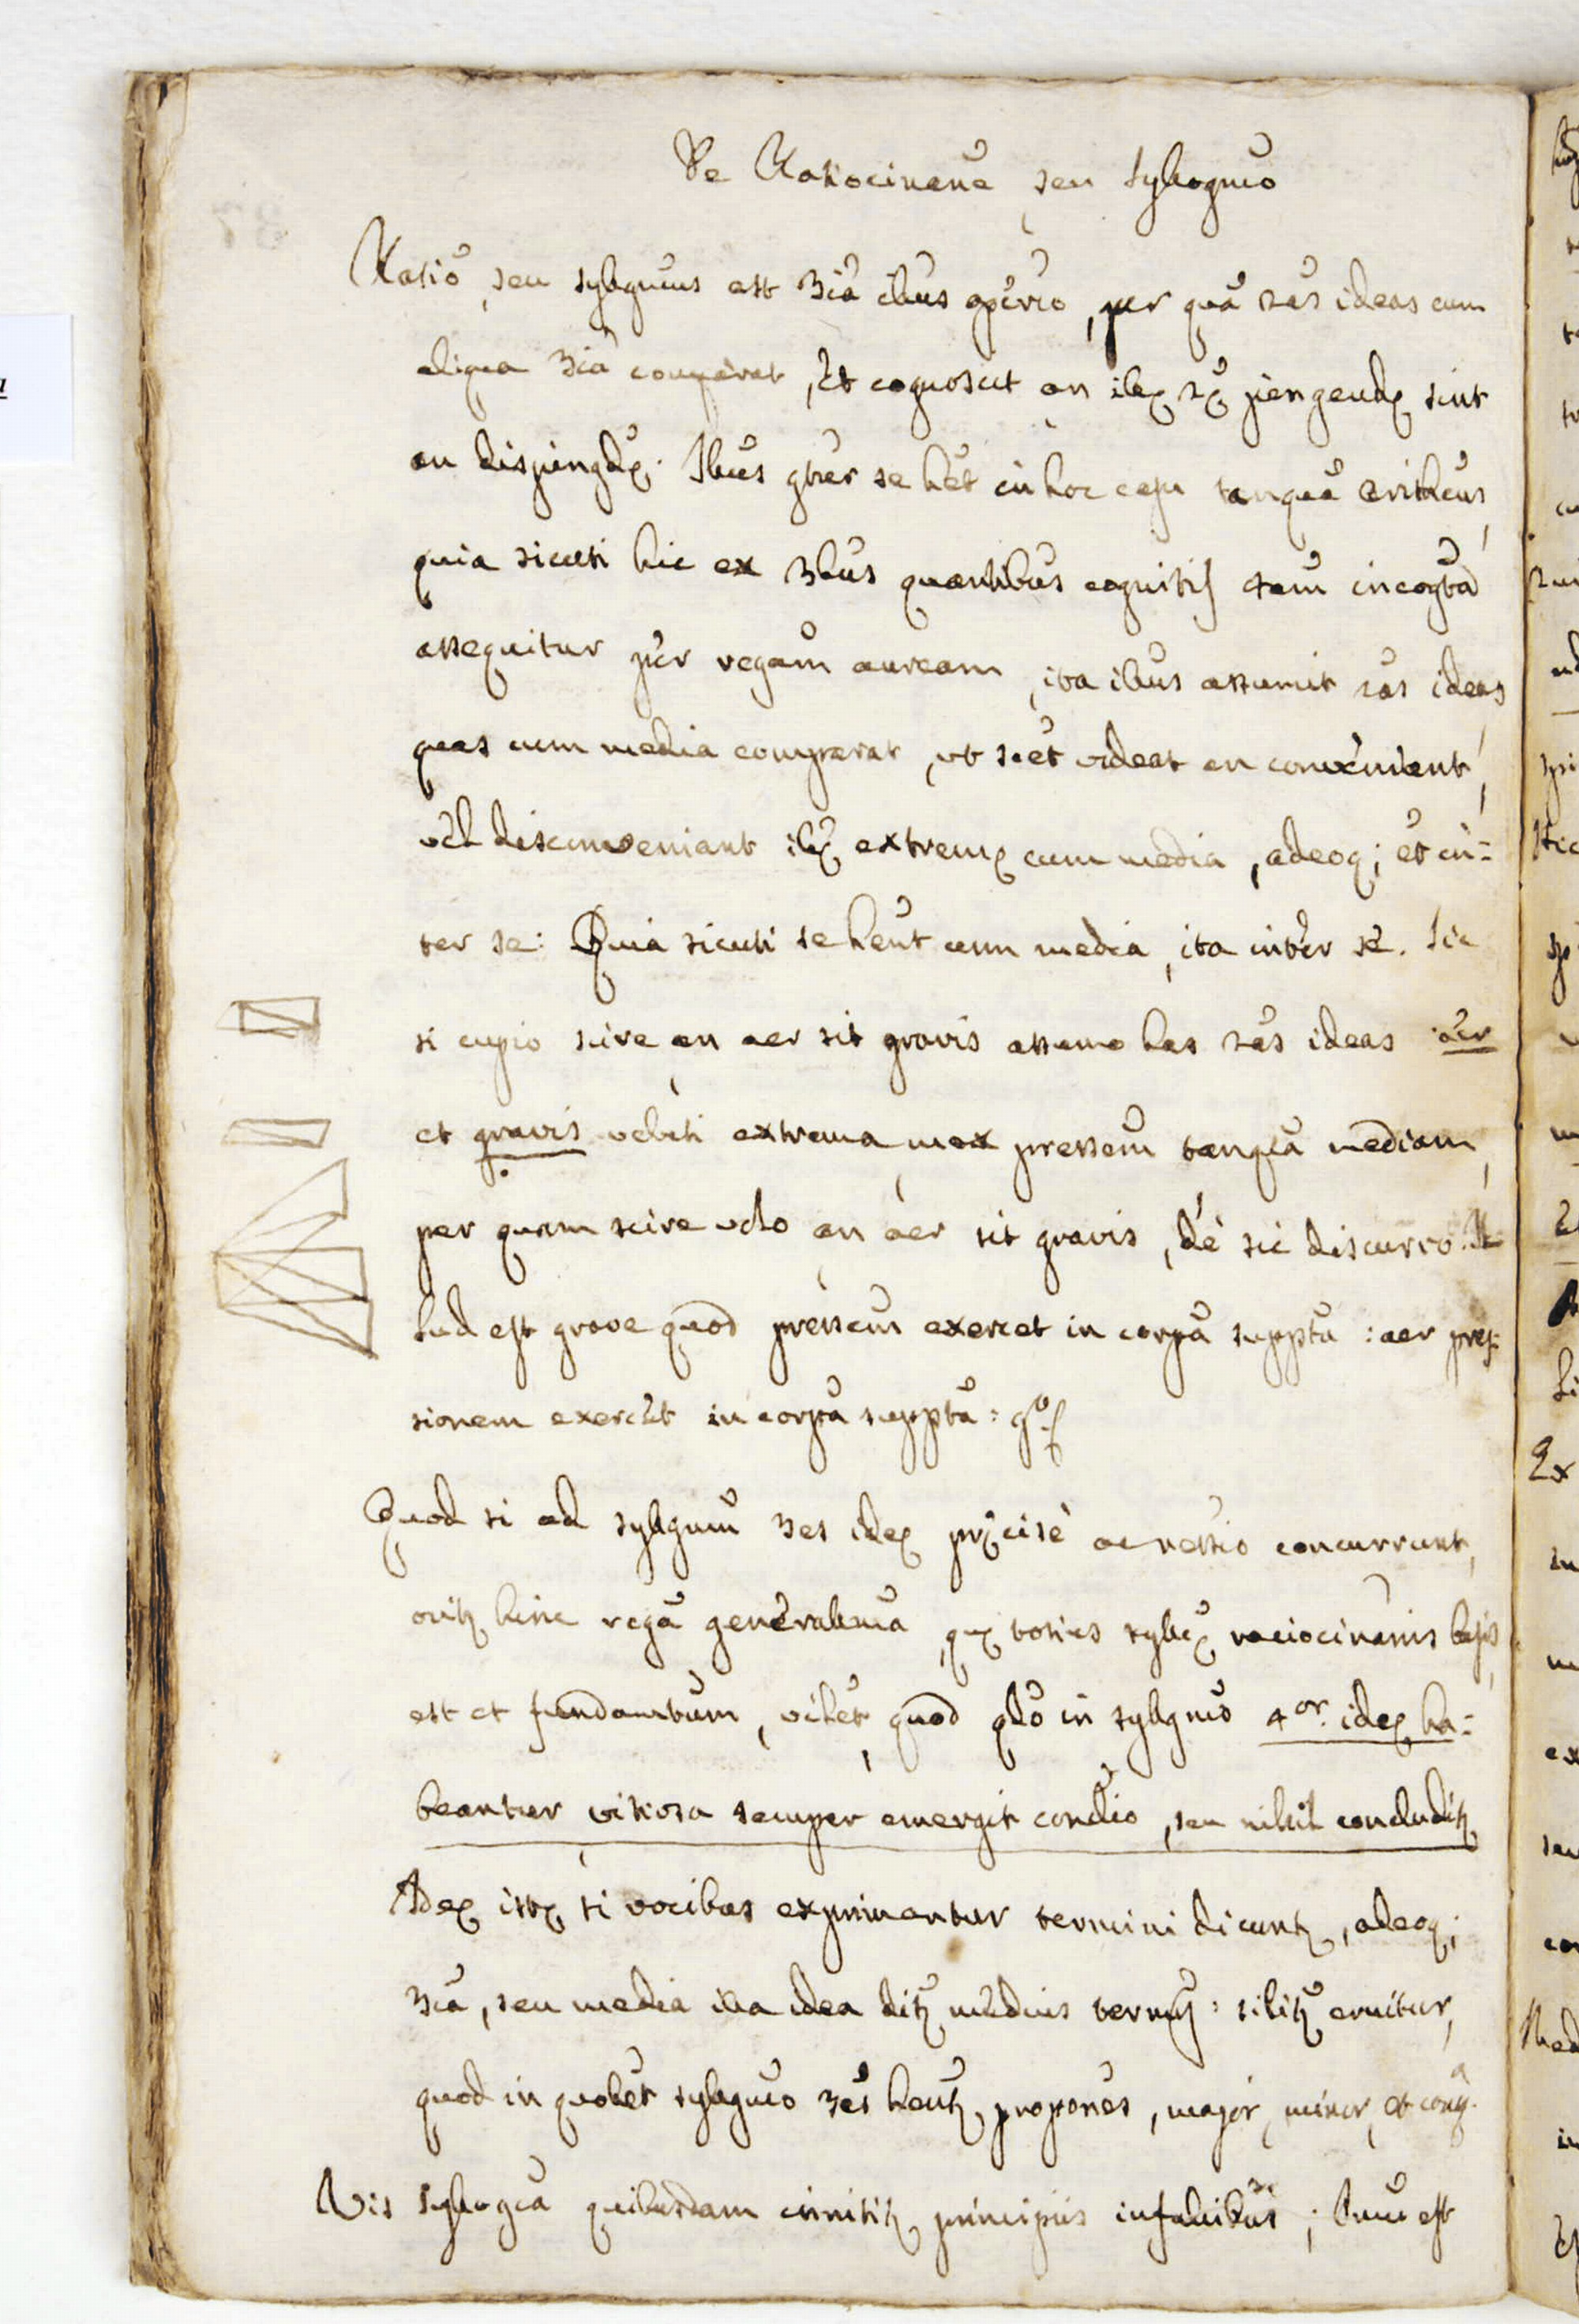 De Ratiocinane seu Syllogmo
Ratio seu syllogmus est 3ia illius opero, per quã 2as ideas cum
aliqua 3ia comparat, et cognoscit an illę 2ę jungendę sint
an disjungdę. Illius gtur se het in hoc casu tanquã arithcus,
quia sicuti hic ex 3bus quantibus cognitis 4tam incogta
assequitur per regam auream, ita illus assumit 2as ideas
quas cum media comparat, ut scet videat an conveniant,
vel disconveniant illę extremę cum media, adeoq; et in=
ter se: Quia sicuti se hent cum media, ita inter se. Sic
si cupio scire an aer sit gravis assumo has 2as ideas aer
et gravis veluti extrema mox pressem tanquã mediam,
per quam scire volo an aer sit gravis, de sic discurro. Il
lud est grave quod pressem exercet in corpa suppta: aer pres=
sionem exercet in corpa suppta: go
Quod si ad syllgum 3es ideę pręcise ac nessio concurrunt,
oritur hinc rega generalema, quę totius syllcę raciocinanis basis
est et fundamtum, vilet quod qdo in syllgmo 4or ideę ha=
beantur vitiosa semper emergit condio, seu nihil concluditur
Ideę istę si vocibus exprimantur termini dicuntur, adeoq;
3ia, seu media illa idea ditur medius termus: siliter eruitur,
quod in quolet syllgmo 3es hentur propones, major, minor, et conq.
Vis syllogca quibusdam innititur principiis infallibus; Imu est